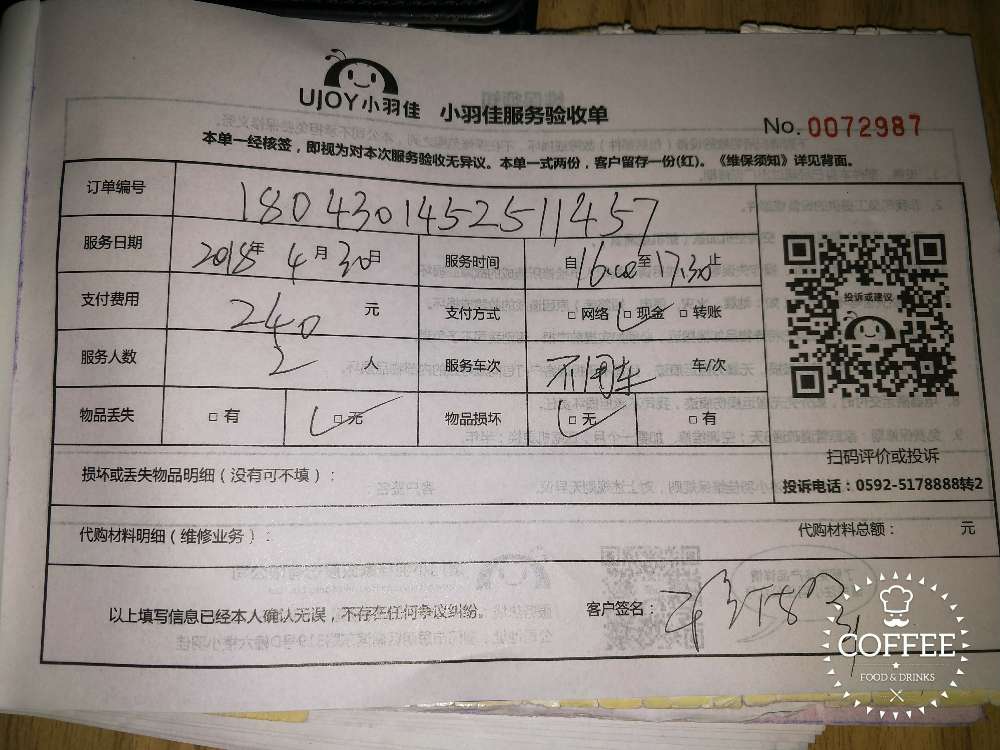 UJOY小羽佳 小羽佳服务验收单
No. 0072987
本单一经核签，即视为对本次服务验收无异议。本单一式两份，客户留存一份(红)。《维保须知》详见背面。
订单编号 1804301452511457
服务日期 2018年 4月 30日 服务时间 自16:00至17:30止
支付费用 240 元 支付方式 □ 网络 □ 现金 □ 转账
投诉或建议
服务人数 2 人 服务车次 不用车 车/次
物品丢失 □ 有 □ 无 物品损坏 □ 无 □ 有
扫码评价或投诉
损坏或丢失物品明细（没有可不填）：
投诉电话：0592-5178888转2
代购材料明细（维修业务）： 代购材料总额： 元
以上填写信息已经本人确认无误，不存在任何争议纠纷。 客户签名：
COFFEE
FOOD & DRINKS